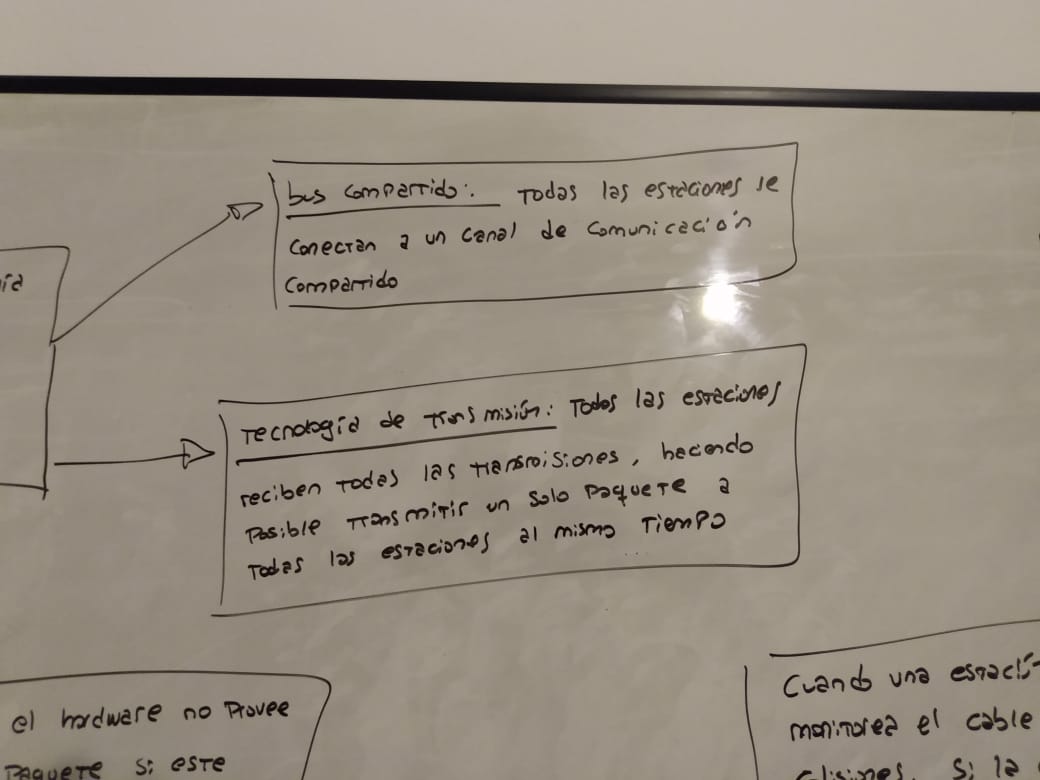 bus compartido: Todas las estaciones se
conectan a un canal de comunicación
compartido
Tecnología de transmisión: Todas las estaciones
reciben todas las transmisiones, haciendo
posible transmitir un solo paquete a
todas las estaciones al mismo tiempo
el hardware no provee
paquete si este
Cuando una
monitorea el cable
si la